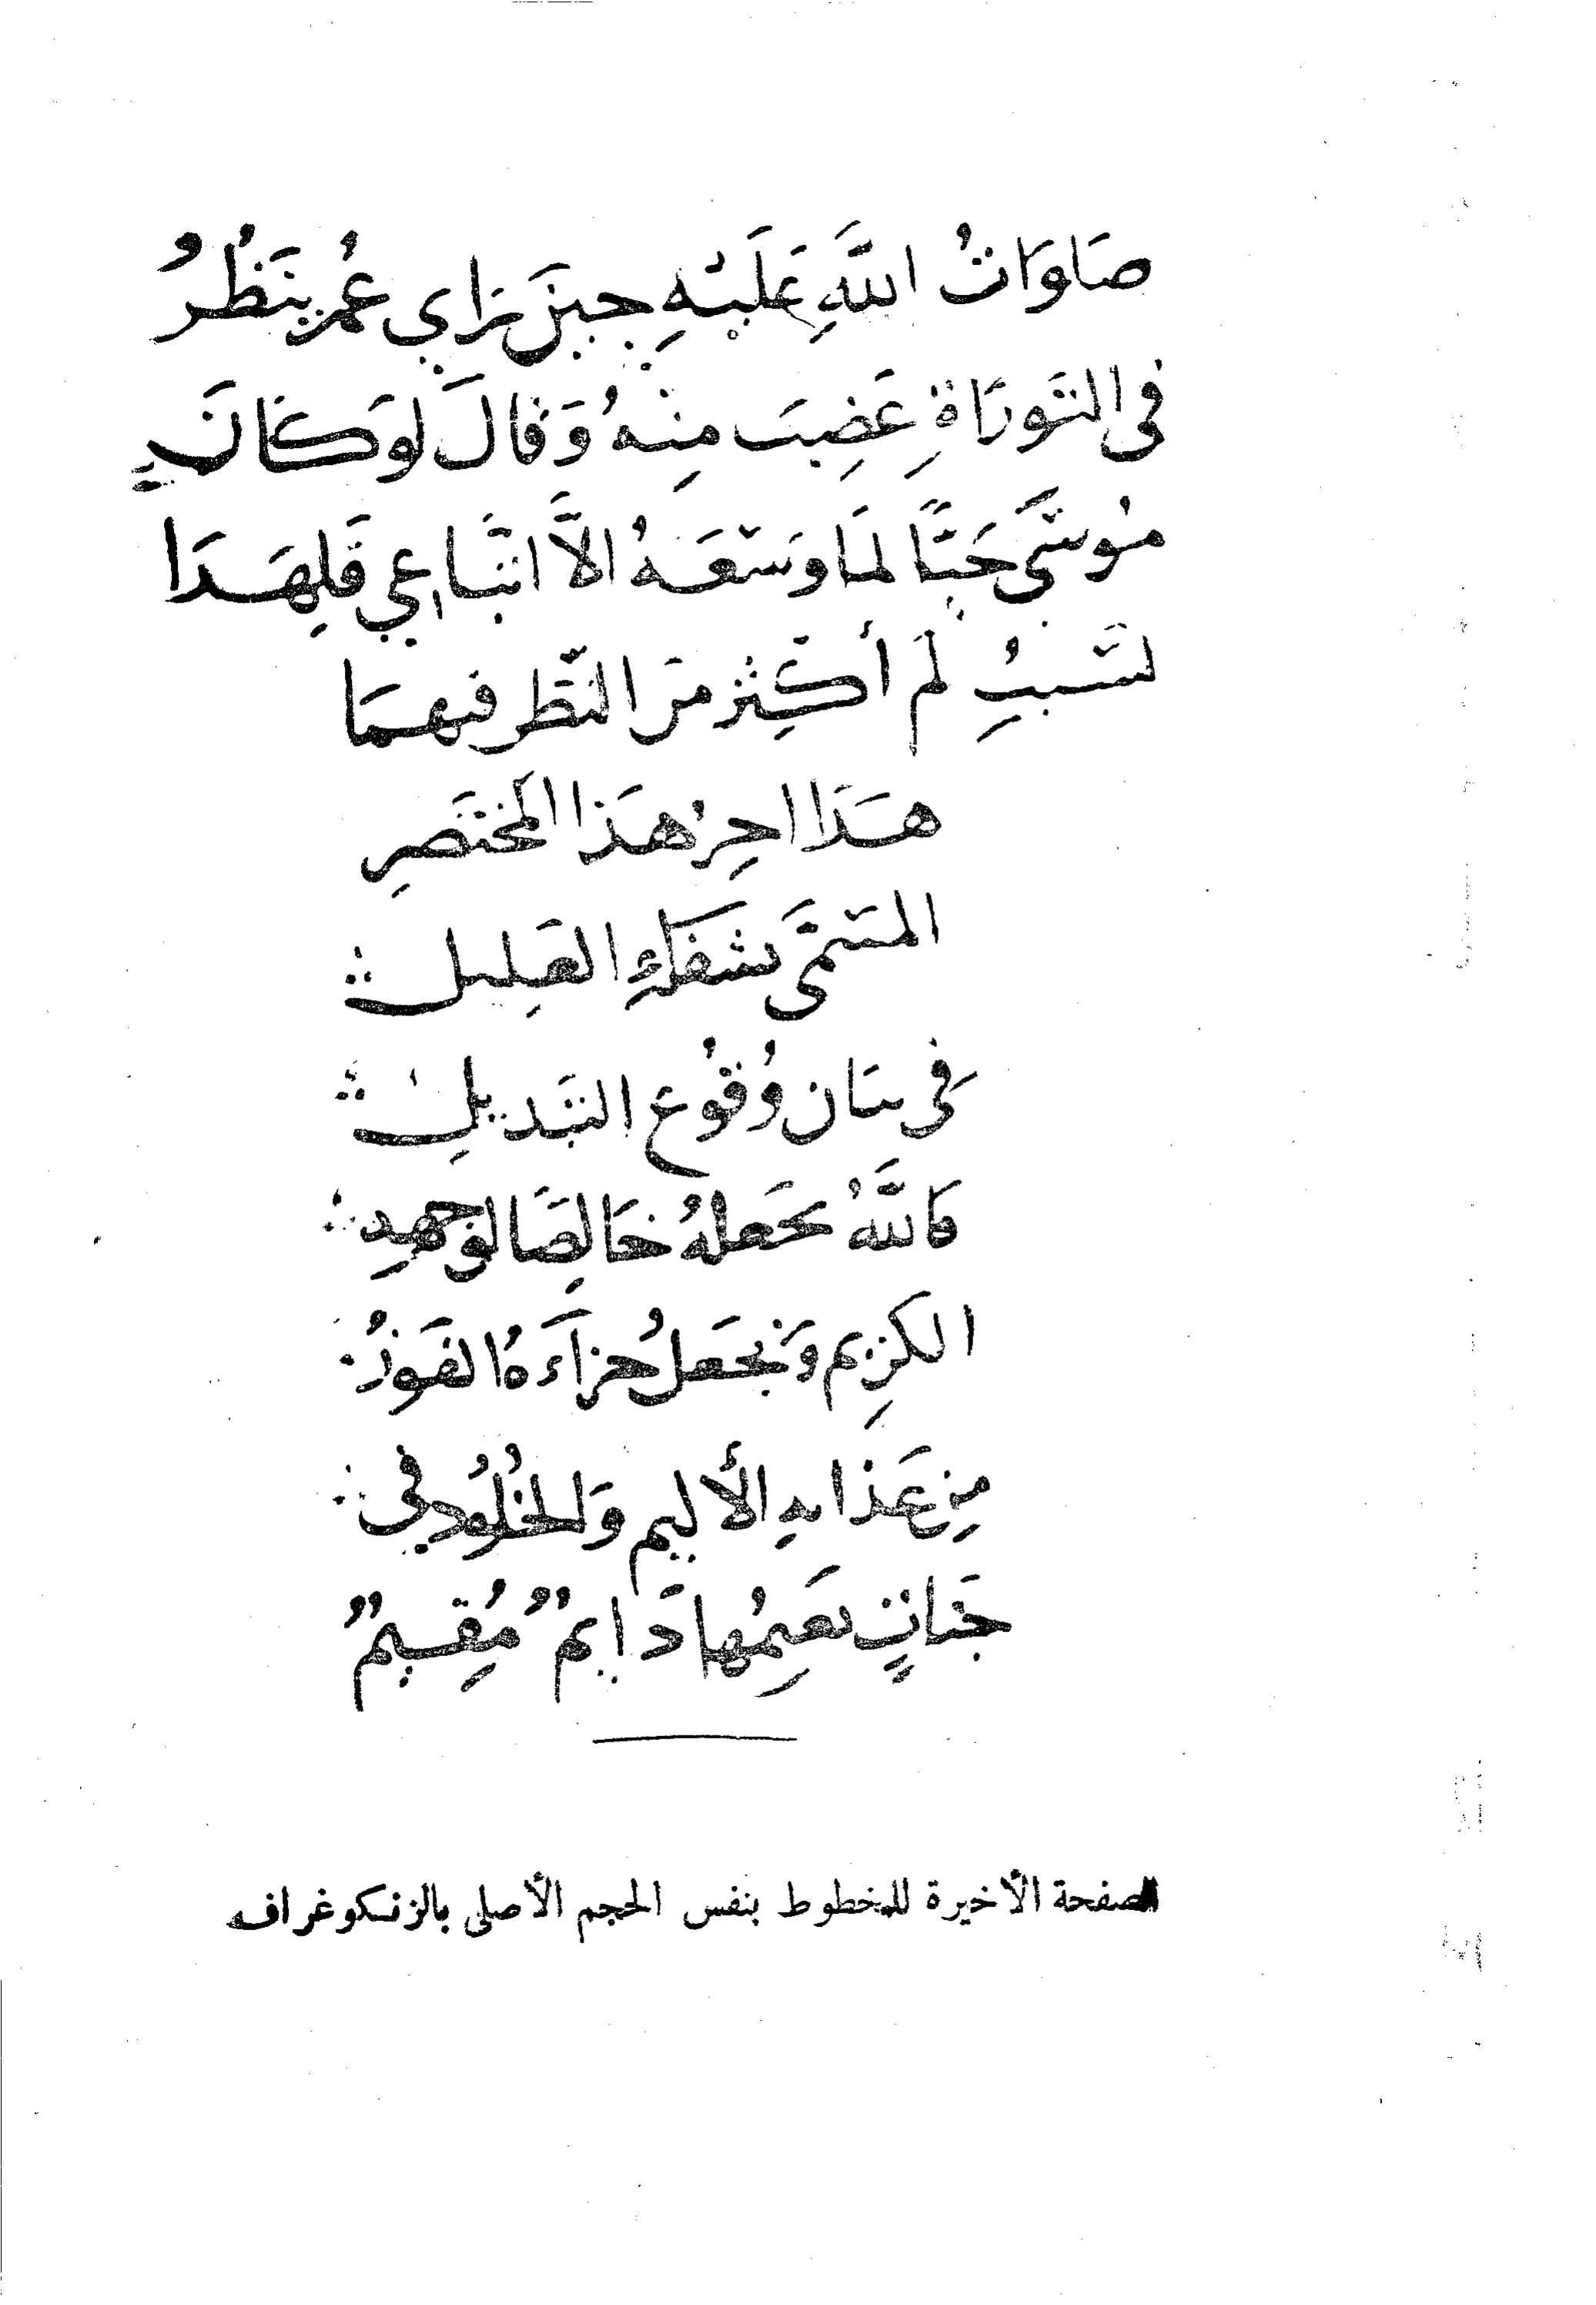 صَلَوَاتُ اللَّهِ عَلَيْهِ حِينَ رَاي عُمَر يَنظُرُ
فى التَّورَاةِ غَضِبَ مِنهُ وَقَالَ لَوكَانَ
مُوسَى حَيًّا لَمَا وَسَعَهُ الاَّ اتبَاعِي فَلِهَذَا
لسَّبَبِ لَم أكثِر مَن النَّظر فيهمَا
هَذَا اخِرُ هَذا المختَصَرِ
المسَمَّى بشفَاءِ الغَلِيل
فِى بيَان وُقُوع التبَديلِ
فَاللَّهُ يَجعلهُ خَالِصًا لوَجههِ
الكَرِيم وَيجعَلُ جزآءَهُ الفَوزُ
مِن عَذابهِ الأليم وَالخُلُود فِي
جَناتٍ نعِيمُها دَايمٌ مُقِيمٌ
الصفحة الأخيرة للمخطوط بنفس الحجم الأصلى بالزنكوغراف